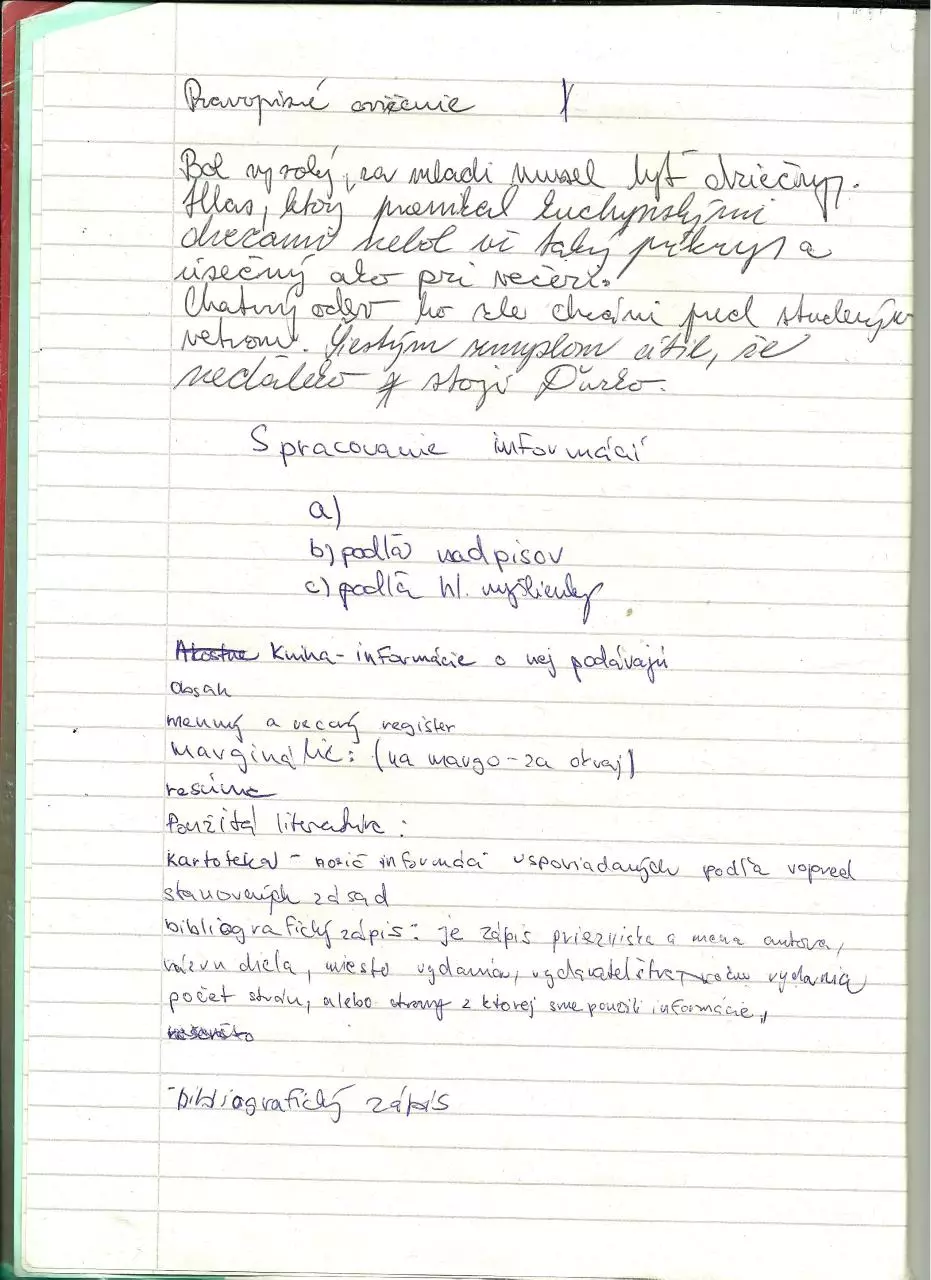 Pravopisné cvičenie
Bol vysoký, za mladi musel byť dziečny.
Hlas, ktorý prenikal kuchynskými
dverami nebol už taký príkry a
úsečný ako pri večeri.
Chatrný odev ho zle chráni pred studeným
vetrom. Šiestým zmyslom cítil, že
nedaleko stojí Ďurko.
Spracovanie informácií
a)
b) podľa nadpisov
c) podľa hl. myšlienky
Kniha - informácie o nej podávajú
obsah
menný a vecný register
marginálie: (na margo - za okraj)
resúme
Použitá literatúra:
kartotéka - nosič informácií usporiadaných podľa vopred
stanovených zásad
bibliografický zápis: je zápis priezviska a mena autora,
názvu diela, miesto vydania, vydavateľstva, vydania
počet strán, alebo strany z ktorej sme použili informácie,
bibliografický zápis